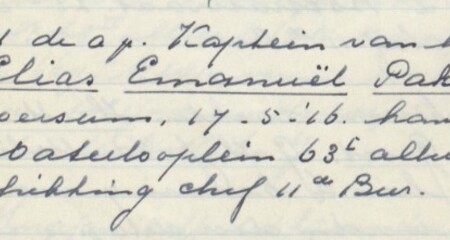 de a p. Kaptein van
Elias Emanuël Pak
oersum, 17-5-'16. han
Waterlooplein 63c alhi
hikking chef 11de Bur.